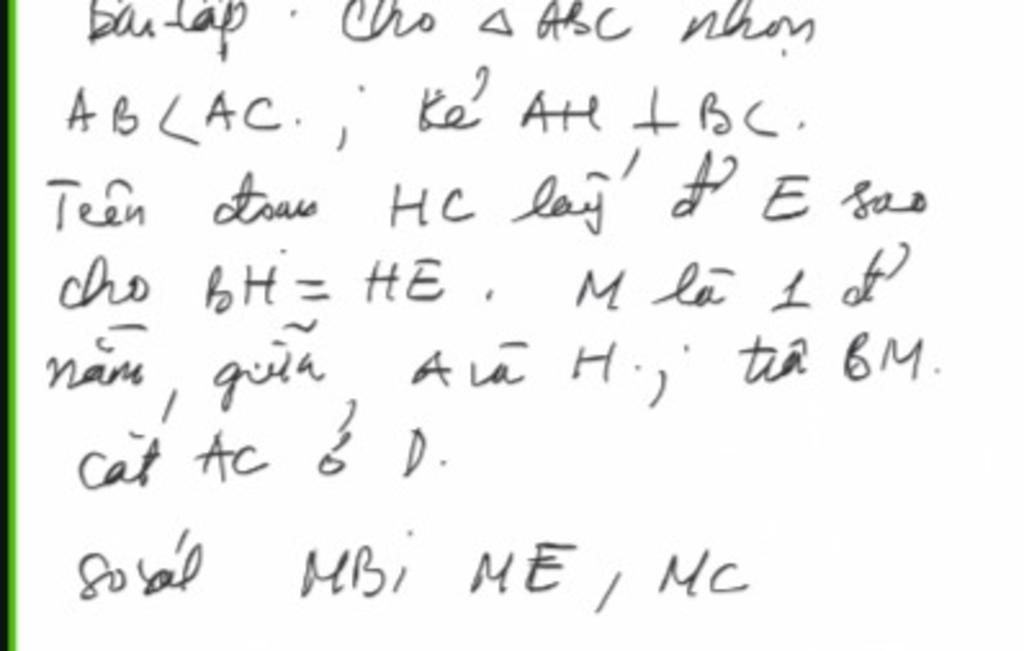 Bài tập. Cho △ ABC nhọn
AB < AC. ; Kẻ AH ⊥ BC.
Trên đoạn HC lấy đ' E sao
cho BH = HE. M là 1 đ'
nằm giữa A và H. ; tia BM.
cắt AC ở D.
So sánh MB; ME, MC